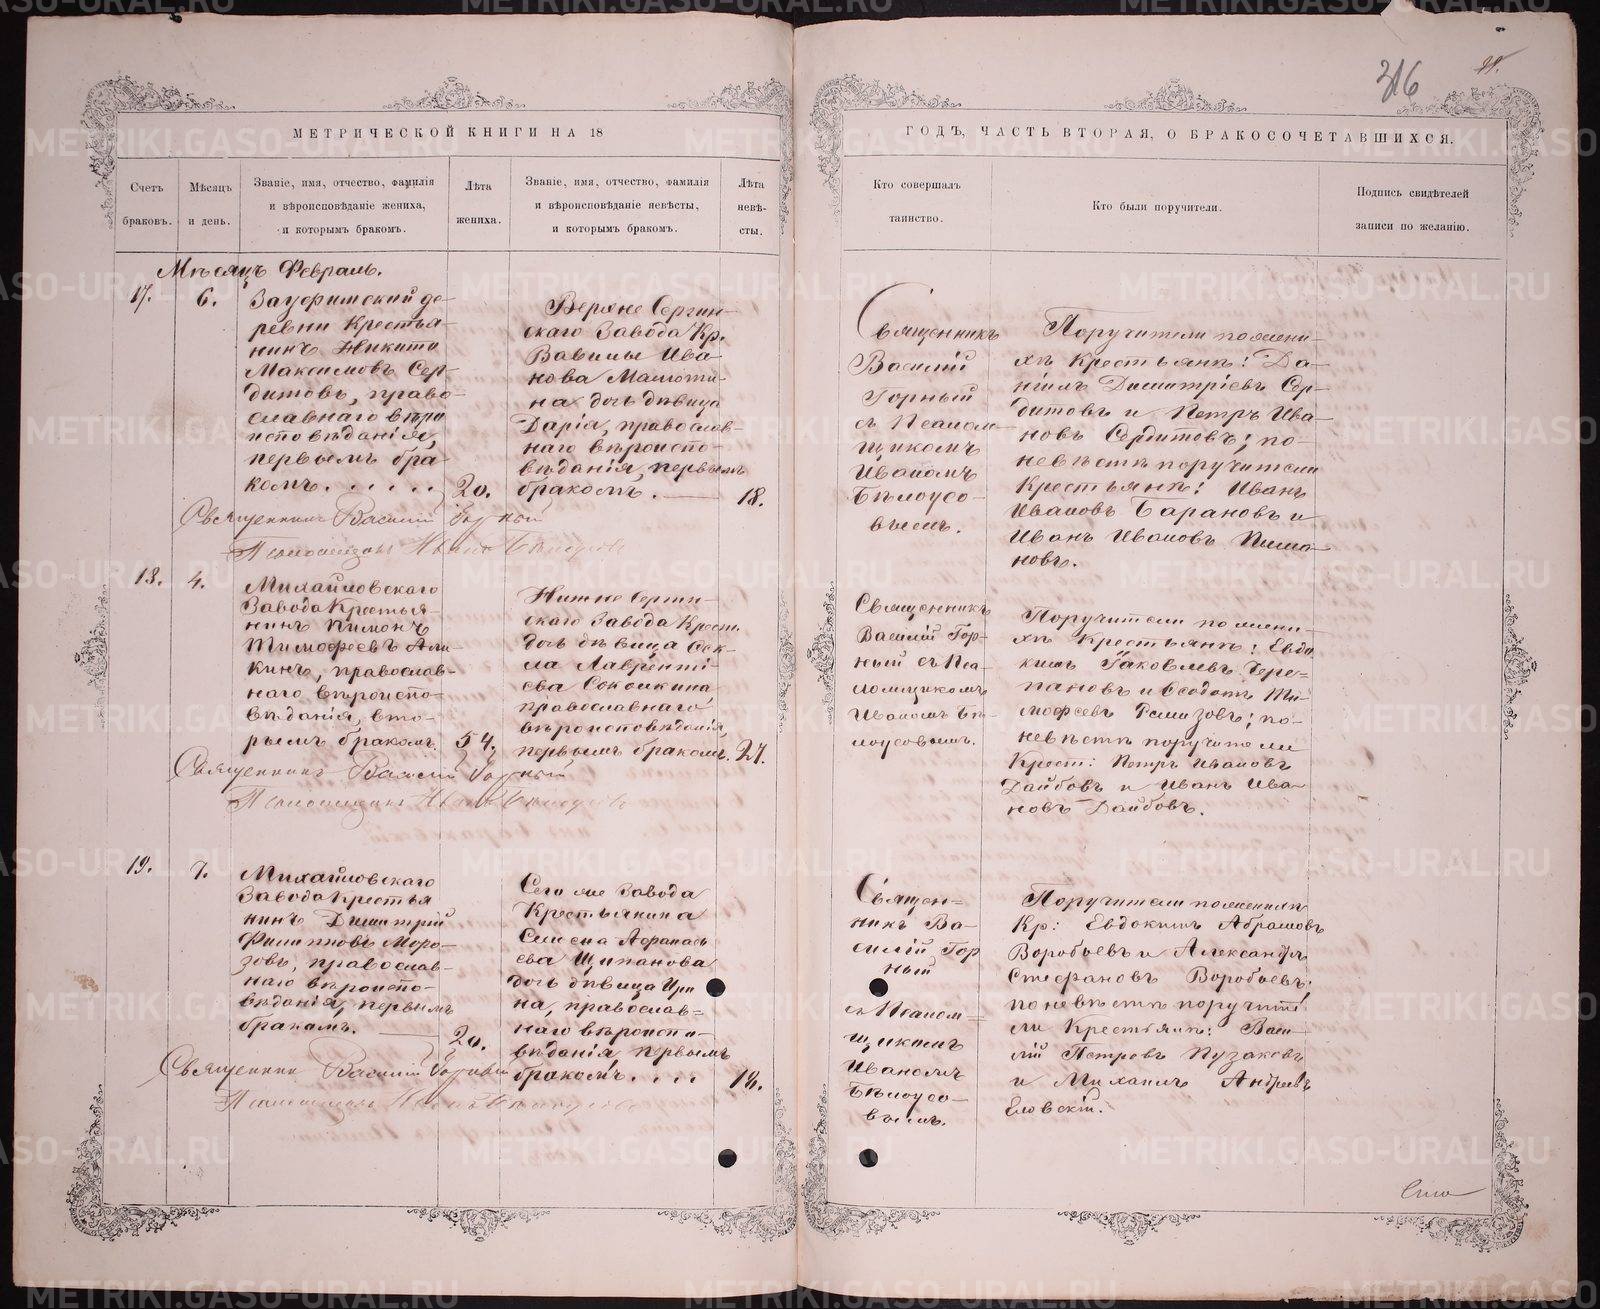 316
МЕТРИЧЕСКОЙ КНИГИ НА 18
ГОДЪ, ЧАСТЬ ВТОРАЯ, О БРАКОСОЧЕТАВШИХСЯ.
Счетъ
браковъ.
Мѣсяцъ
и день.
Званіе, имя, отчество, фамилія
и вѣроисповѣданіе жениха,
и которымъ бракомъ.
Лѣта
жениха.
Званіе, имя, отчество, фамилія
и вѣроисповѣданіе невѣсты,
и которымъ бракомъ.
Лѣта
невѣ-
сты.
Кто совершалъ
таинство.
Кто были поручители.
Подпись свидѣтелей
записи по желанію.
Мѣсяцъ Февраль.
17.
6.
Зауфимской де-
ревни Крестья-
нинъ Никита
Максимовъ Сер-
дитовъ, право-
славнаго вѣро
исповѣданія,
первымъ бра-
комъ.....
20.
Верхне Сергин-
скаго Завода Кр.
Вавилы Ива
нова Малюти-
на дочь дѣвица
Дарія, православ-
наго вѣроиспо-
вѣданія, первымъ
бракомъ.
18.
Священникъ
Василій
Горный
съ Псалом-
щикомъ
Иваномъ
Бѣлоусо-
вымъ.
Поручители по жени-
хѣ Крестьяне: Да-
ніилъ Димитріевъ Сер-
дитовъ и Петръ Ива-
новъ Сердитовъ; по-
невѣстѣ поручители
Крестьяне: Иванъ
Ивановъ Барановъ и
Иванъ Ивановъ Пима-
новъ.
Священникъ Василій Горный
Псаломщикъ Иванъ Бѣлоусовъ
18.
4.
Михайловскаго
Завода Крестья-
нинъ Пимонъ
Тимофеевъ Али-
кинъ, православ-
наго вѣроиспо-
вѣданія, вто-
рымъ бракомъ.
54.
Нижне Сергин-
скаго Завода Крест.
дочь дѣвица Фек-
ла Лаврентi-
ева Соколкина,
православнаго
вѣроисповѣданія,
первымъ бракомъ.
27.
Священникъ
Василій Гор-
ный съ Пса-
ломщикомъ
Иваномъ Бѣ-
лоусовымъ.
Поручители по жени-
хѣ Крестьяне: Евдо
кимъ Яковлевъ Чере-
пановъ и Ѳеодотъ Ти-
мофеевъ Ремизовъ; по-
невѣстѣ поручители
Крест: Петръ Ивановъ
Дайбовъ и Иванъ Ива-
новъ Дайбовъ.
Священникъ Василій Горный
Псаломщикъ Иванъ Бѣлоусовъ
19.
7.
Михайловскаго
Завода Крестья
нинъ Димитрій
Филипповъ Моро-
зовъ, православ-
наго вѣроиспо-
вѣданія, первымъ
бракамъ.
20.
Сего же Завода
Крестьянина
Семена Афанась
ева Щипанова
дочь дѣвица Ири
на, православ-
наго вѣроиспо-
вѣданія, первымъ
бракомъ....
18.
Священ-
никъ Ва-
силій Гор
ный
съ Псалом-
щикомъ
Иваномъ
Бѣлоусо-
вымъ.
Поручители по женихѣ
Кр: Евдокимъ Абрамовъ
Воробьевъ и Александръ
Стефановъ Воробьевъ;
по невѣстѣ поручите
ли Крестьяне: Васи-
лій Петровъ Пузаковъ
и Михаилъ Андреевъ
Еловскій.
Священникъ Василій Горный
Псаломщикъ Иванъ Бѣлоусовъ